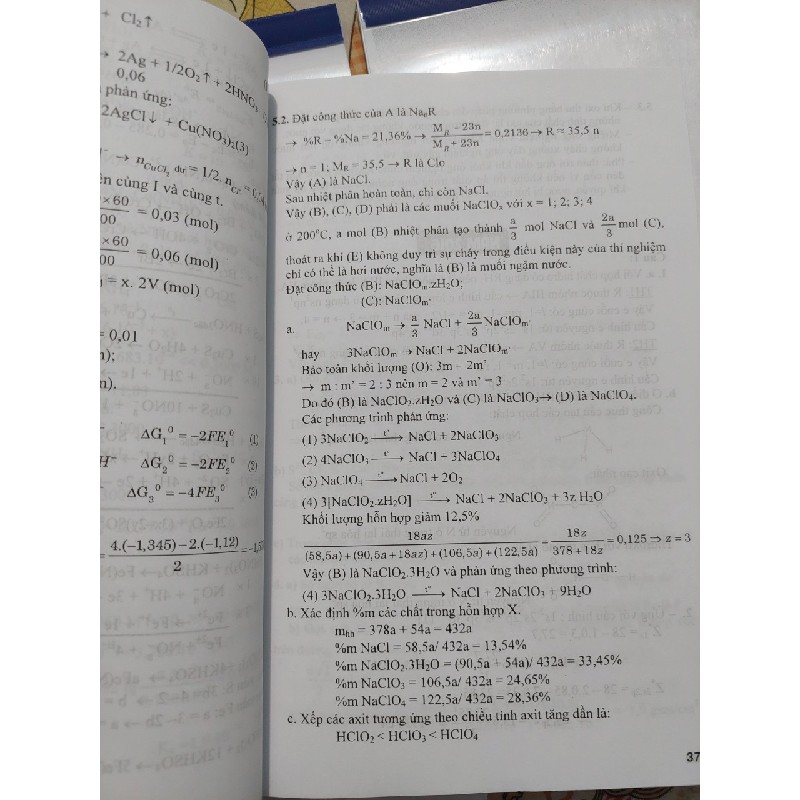 + Cl₂↑
→ 2Ag + 1/2O₂↑ + 2HNO₃
0,06
phản ứng:
2AgCl↓ + Cu(NO₃)₂(3)
→ nCuCl₂ dư = 1/2. nCl⁻
ên cùng I và cùng t.
×60
00 = 0,03 (mol)
×60
00 = 0,06 (mol)
= x. 2V (mol)
= 0,01
n);
n).
ΔG₁⁰ = −2FE₁⁰ (1)
H⁻ ΔG₂⁰ = −2FE₂⁰ (2)
ΔG₃⁰ = −4FE₃⁰ (3)
4.(−1,345) − 2.(−1,12)
2
5.2. Đặt công thức của A là NaₙR
→ %R − %Na = 21,36% → (M_R − 23n)/(M_R + 23n) = 0,2136 → R = 35,5 n
→ n = 1; M_R = 35,5 → R là Clo
Vậy (A) là NaCl.
Sau nhiệt phân hoàn toàn, chỉ còn NaCl.
Vậy (B), (C), (D) phải là các muối NaClOₓ với x = 1; 2; 3; 4
ở 200°C, a mol (B) nhiệt phân tạo thành a/3 mol NaCl và 2a/3 mol (C),
thoát ra khí (E) không duy trì sự cháy trong điều kiện này của thí nghiệm
chỉ có thể là hơi nước, nghĩa là (B) là muối ngậm nước.
Đặt công thức (B): NaClOₘ.zH₂O;
(C): NaClOₘ'
a. NaClOₘ → a/3 NaCl + 2a/3 NaClOₘ'
hay 3NaClOₘ → NaCl + 2NaClOₘ'
Bảo toàn khối lượng (O): 3m = 2m'
→ m : m' = 2 : 3 nên m = 2 và m' = 3
Do đó (B) là NaClO₂.zH₂O và (C) là NaClO₃ → (D) là NaClO₄.
Các phương trình phản ứng:
(1) 3NaClO₂ —t°→ NaCl + 2NaClO₃
(2) 4NaClO₃ —t°→ NaCl + 3NaClO₄
(3) NaClO₄ —t°→ NaCl + 2O₂
(4) 3[NaClO₂.zH₂O] —t°→ NaCl + 2NaClO₃ + 3z H₂O
Khối lượng hỗn hợp giảm 12,5%
18az/((58,5a)+(90,5a+18az)+(106,5a)+(122,5a)) = 18z/(378+18z) = 0,125 ⇒ z = 3
Vậy (B) là NaClO₂.3H₂O và phản ứng theo phương trình:
(4) 3NaClO₂.3H₂O —t°→ NaCl + 2NaClO₃ + 9H₂O
b. Xác định %m các chất trong hỗn hợp X.
m_hh = 378a + 54a = 432a
%m NaCl = 58,5a/ 432a = 13,54%
%m NaClO₂.3H₂O = (90,5a + 54a)/ 432a = 33,45%
%m NaClO₃ = 106,5a/ 432a = 24,65%
%m NaClO₄ = 122,5a/ 432a = 28,36%
c. Xếp các axit tương ứng theo chiều tính axit tăng dần là:
HClO₂ < HClO₃ < HClO₄
37